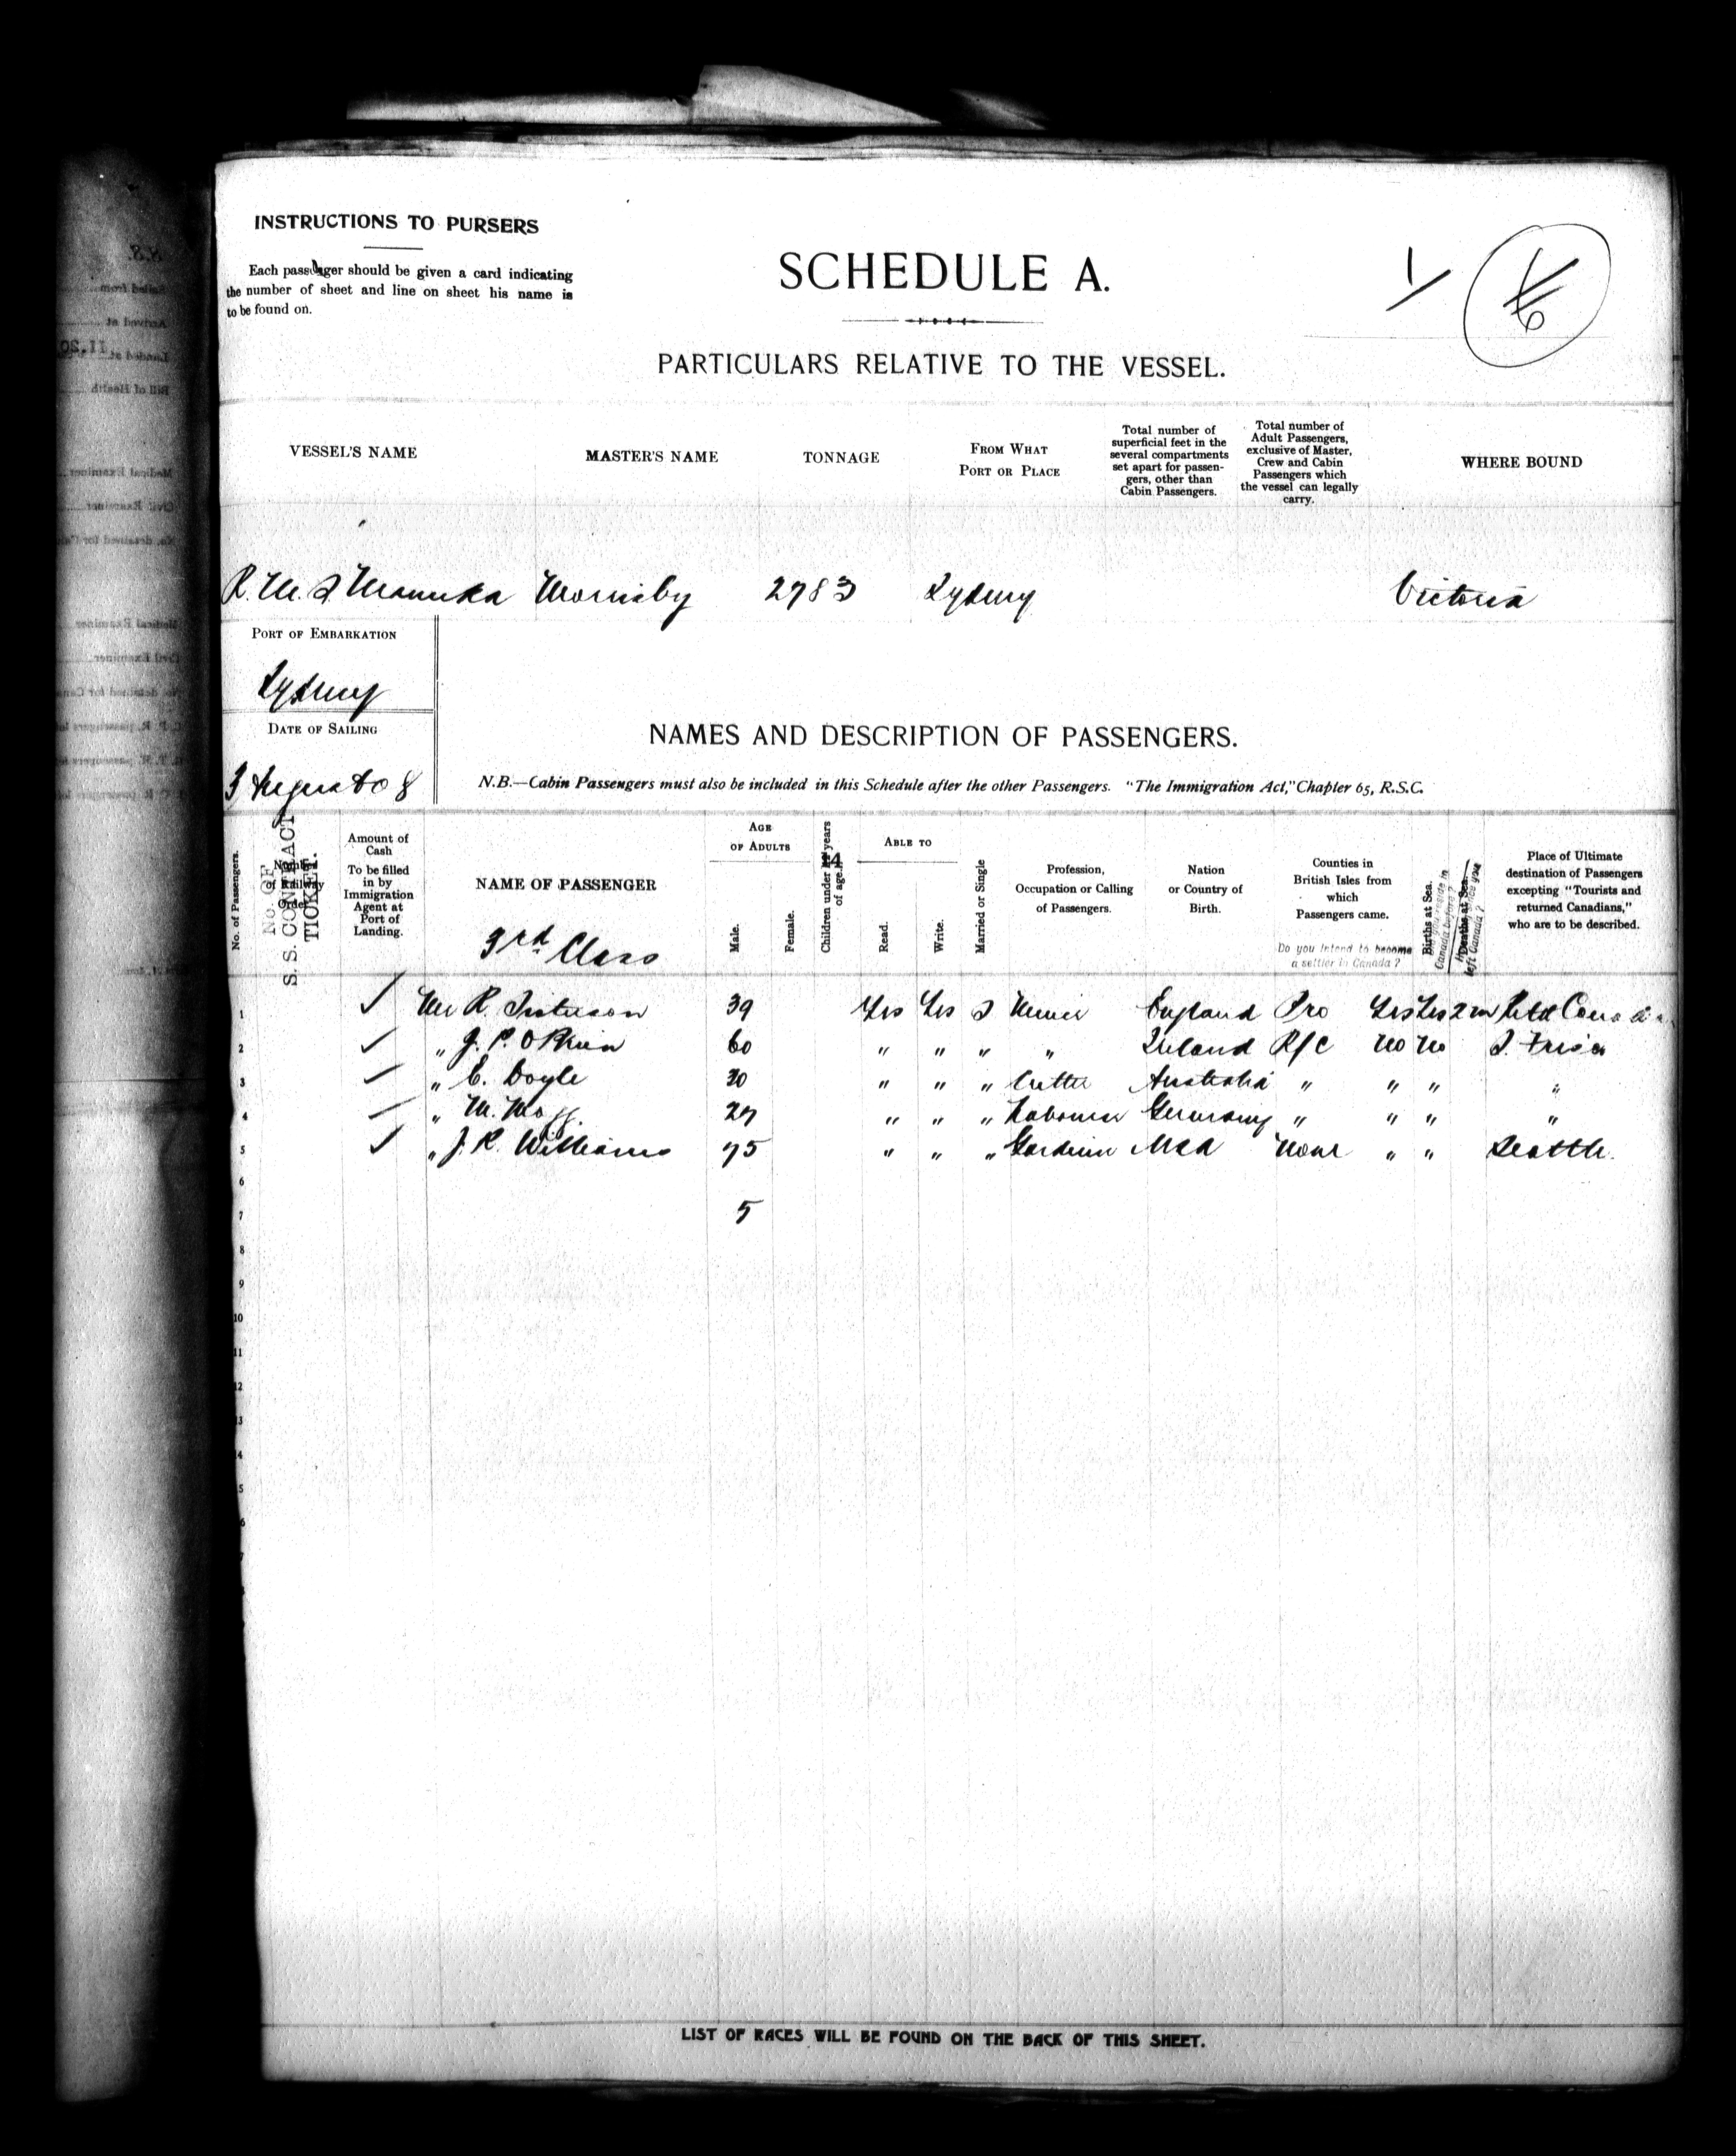 INSTRUCTIONS TO PURSERS
Each passenger should be given a card indicating
the number of sheet and line on sheet his name is
to be found on.
SCHEDULE A.
PARTICULARS RELATIVE TO THE VESSEL.
VESSEL'S NAME
MASTER'S NAME
TONNAGE
FROM WHAT
PORT OR PLACE
Total number of
superficial feet in the
several compartments
set apart for passen-
gers, other than
Cabin Passengers.
Total number of
Adult Passengers,
exclusive of Master,
Crew and Cabin
Passengers which
the vessel can legally
carry.
WHERE BOUND
R.M.S Manuka Worrisby 2783 Sydney Victoria
PORT OF EMBARKATION
Sydney
DATE OF SAILING
3 August 08
NAMES AND DESCRIPTION OF PASSENGERS.
N.B.—Cabin Passengers must also be included in this Schedule after the other Passengers. "The Immigration Act," Chapter 65, R.S.C.
No. of Passengers.
Number
of Railway
Order
NO. OF
S. S. CONTRACT
TICKET.
Amount of
Cash
To be filled
in by
Immigration
Agent at
Port of
Landing.
NAME OF PASSENGER
3rd Class
AGE
OF ADULTS
Male.
Female.
Children under 14 years
of age.
ABLE TO
Read.
Write.
Married or Single
Profession,
Occupation or Calling
of Passengers.
Nation
or Country of
Birth.
Counties in
British Isles from
which
Passengers came.
Do you intend to become
a settler in Canada?
Births at Sea.
Deaths at Sea.
Canada before?
left Canada?
Place of Ultimate
destination of Passengers
excepting "Tourists and
returned Canadians,"
who are to be described.
1 Mr R. 39 Yes Yes S Miner England Pro Yes Yes 2 m Retd Canadian
2 " J. P. O'Brien 60 " " " " Ireland R/C No No S. Frisco
3 " C. Doyle 30 " " " Cutter Australia " " " "
4 " M. 27 " " " Labourer Germany " " " "
5 " J. R. Williams 75 " " " Gardener USA None " " Seattle.
6
7 5
8
9
10
11
12
13
14
5
6
7
LIST OF RACES WILL BE FOUND ON THE BACK OF THIS SHEET.